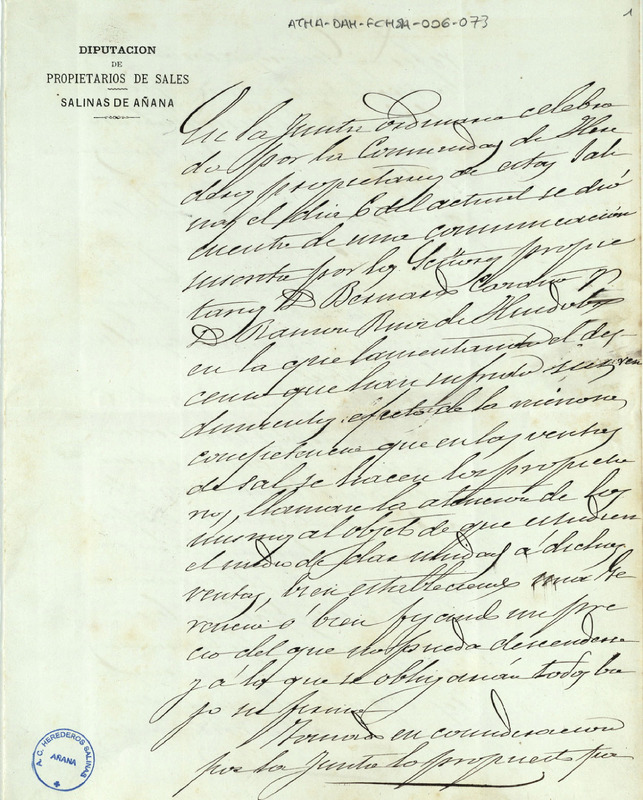 ATHA-DAH-FCHSA-006-073
1
DIPUTACION
DE
PROPIETARIOS DE SALES
SALINAS DE AÑANA
En la Junta ordinaria celebra
da por la Comunidad de Here
deros propietarios de estas Sali
nas el dia 6 del actual se dió
cuenta de una comunicación
suscrita por los Señores propie
tarios D. Bernardo y
D. Ramon Ruiz de
en la que lamentando el des
censo que han sufrido sus ren
dimientos, efecto de la
competencia que en las ventas
de sal se hacen los propieta
rios, llaman la atencion de los
mismos al objeto de que estudien
el medio de dar unidad á dichas
ventas, bien estableciendo una Ge
rencia ó bien fijando un pre
cio del que no pueda descenderse
y á lo que se obligarán todos ba
jo su firma
Tomado en consideracion
por la Junta lo propuesto por
A. C. HEREDEROS SALINAS
AÑANA